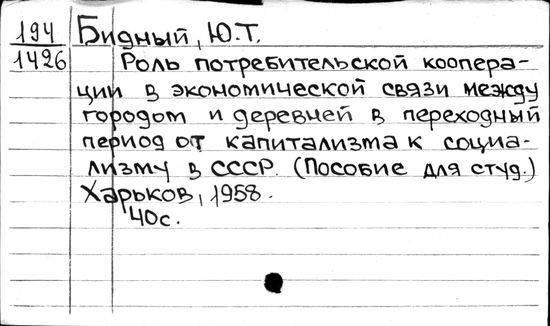 194 Бидный, Ю.Т.
1426 Роль потребительской коопера-
ции в экономической связи между
городом и деревней в переходный
период от капитализма к социа-
лизму в СССР. (Пособие для студ.)
Харьков, 1958.
40с.